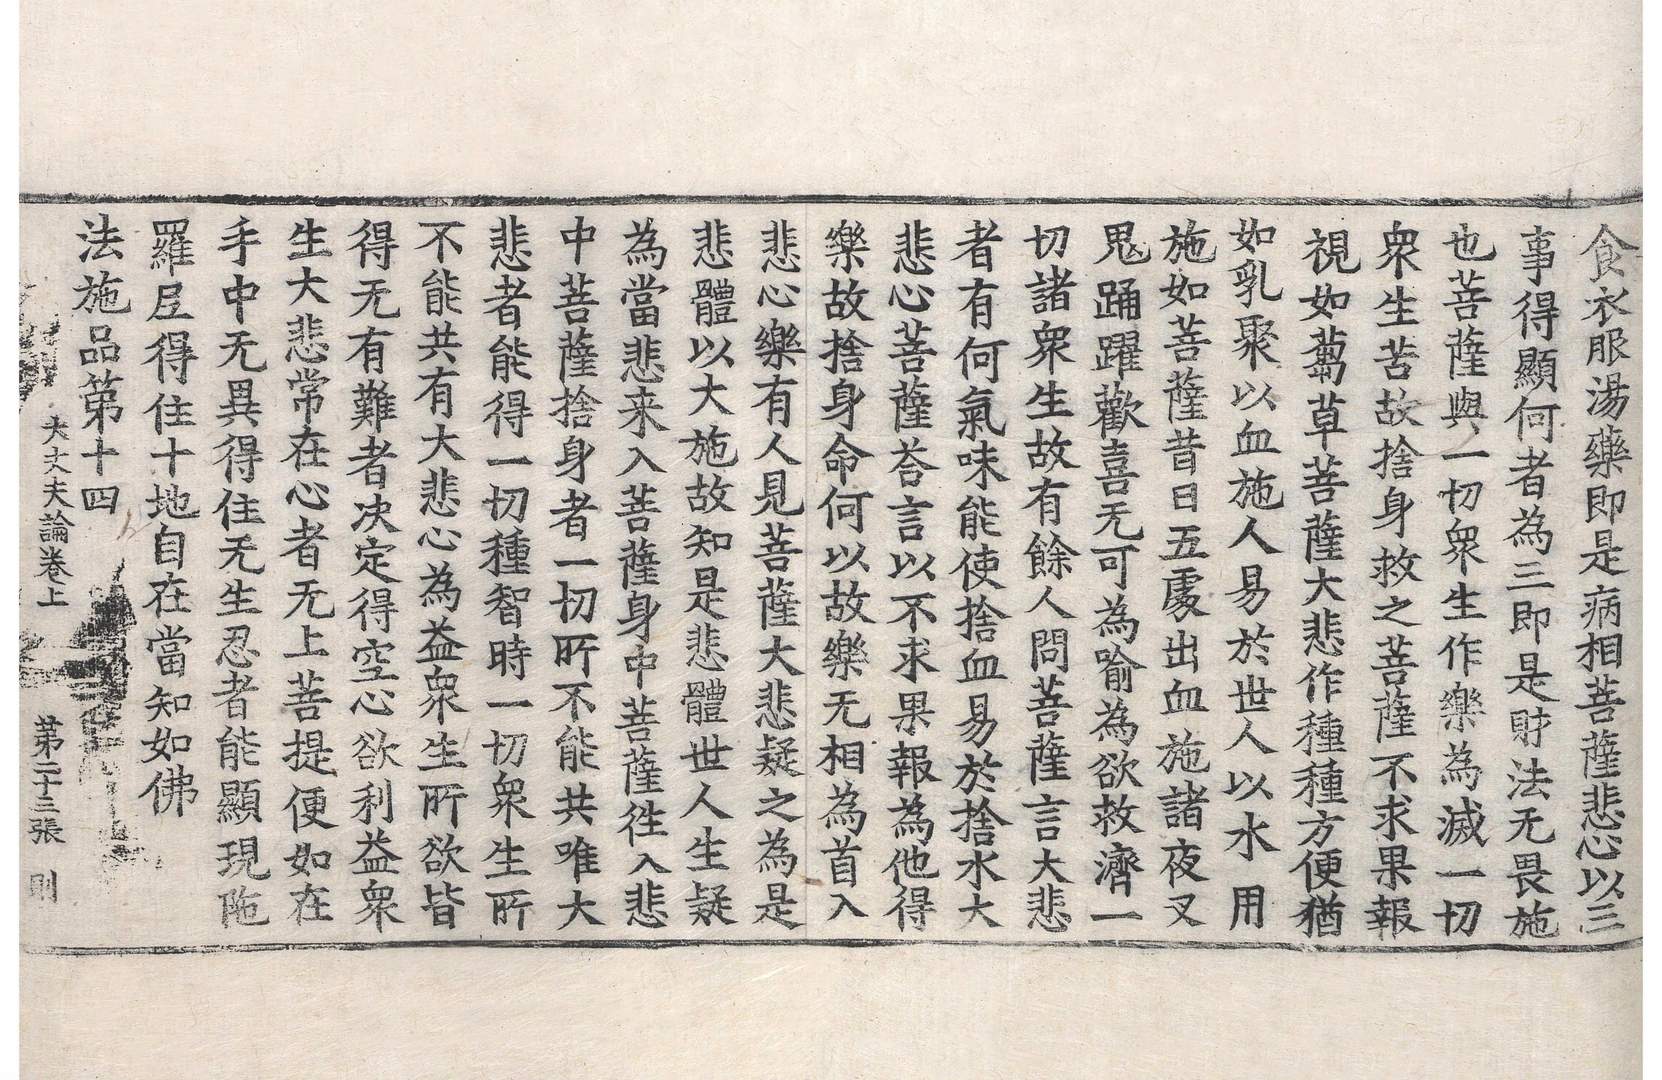 食衣服湯藥即是病相菩薩悲心以三
事得顯何者為三即是財法无畏施
也菩薩與一切眾生作樂為滅一切
眾生苦故捨身救之菩薩不求果報
視如蒭草菩薩大悲作種種方便猶
如乳聚以血施人易於世人以水用
施如菩薩昔日五處出血施諸夜叉
鬼踊躍歡喜无可為喻為欲救濟一
切諸眾生故有餘人問菩薩言大悲
者有何氣味能使捨血易於捨水大
悲心菩薩荅言以不求果報為他得
樂故捨身命何以故樂无相為首入
悲心樂有人見菩薩大悲疑之為是
悲體以大施故知是悲體世人生疑
為當悲来入菩薩身中菩薩徃入悲
中菩薩捨身者一切所不能共唯大
悲者能得一切種智時一切眾生所
不能共有大悲心為益眾生所欲皆
得无有難者决定得空心欲利益眾
生大悲常在心者无上菩提便如在
手中无異得住无生忍者能顯現陁
羅尼得住十地自在當知如佛
法施品第十四
大丈夫論卷上 第二十三張 則